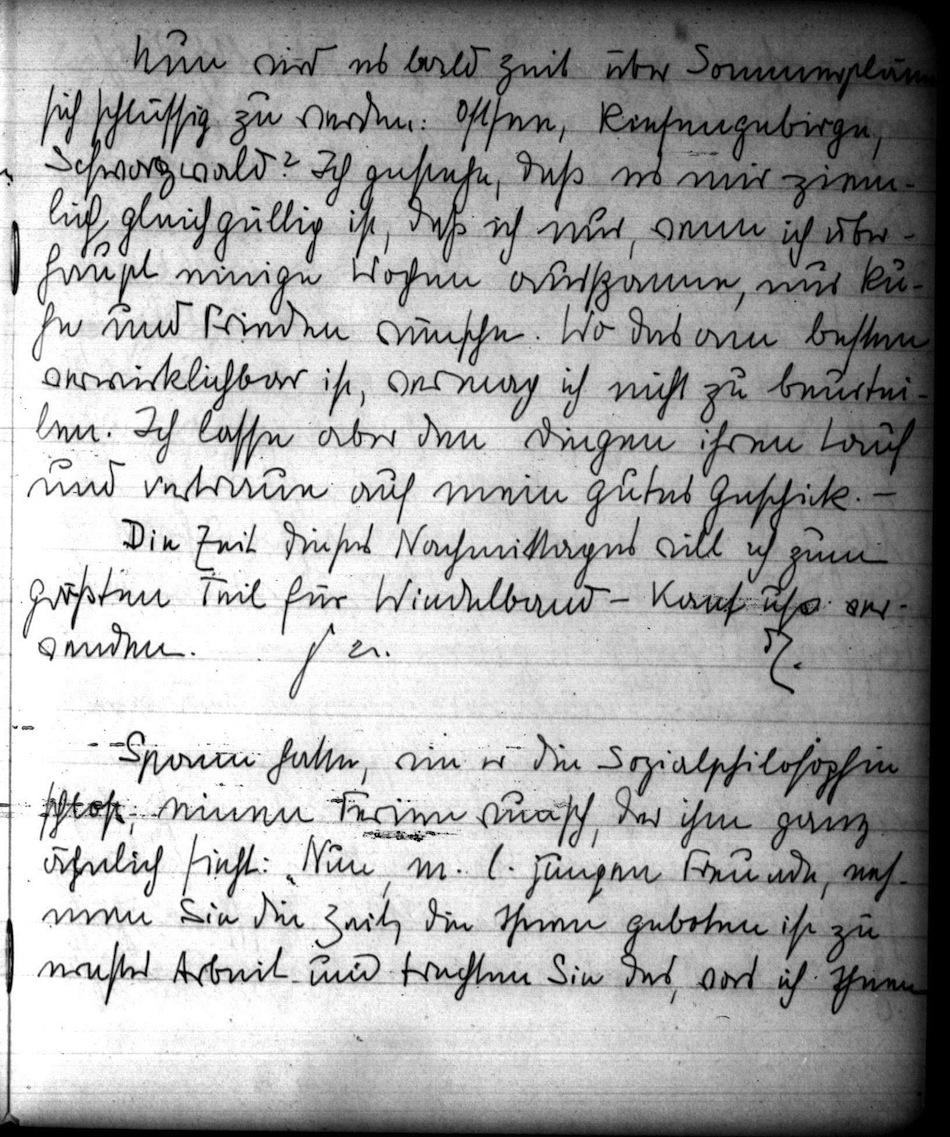 Nun wird es bald Zeit über Sommerpläne
sich schlüssig zu werden: Ostsee, Riesengebirge,
Schwarzwald? Ich gestehe, daß es mir ziem-
lich gleichgültig ist, daß ich nur, wenn ich über-
haupt einige Wochen ausspanne, nur Ru-
he und Frieden wünsche. Wo das am besten
verwirklichbar ist, vermag ich nicht zu beurtei-
len. Ich lasse aber den Dingen ihren Lauf
und vertraue auf mein gutes Geschick. –
Die Zeit dieses Nachmittages will ich zum
größten Teil für Windelband – Kant usw ver-
wenden.
Spann hatte, wie er die Sozialphilosophie
schloß, einen Ferienwunsch, der ihm ganz
ähnlich sieht: „Nun, m. l. jungen Freunde, neh-
men Sie die Zeit, die Ihnen geboten ist zu
ernster Arbeit und trachten Sie das, was ich Ihnen